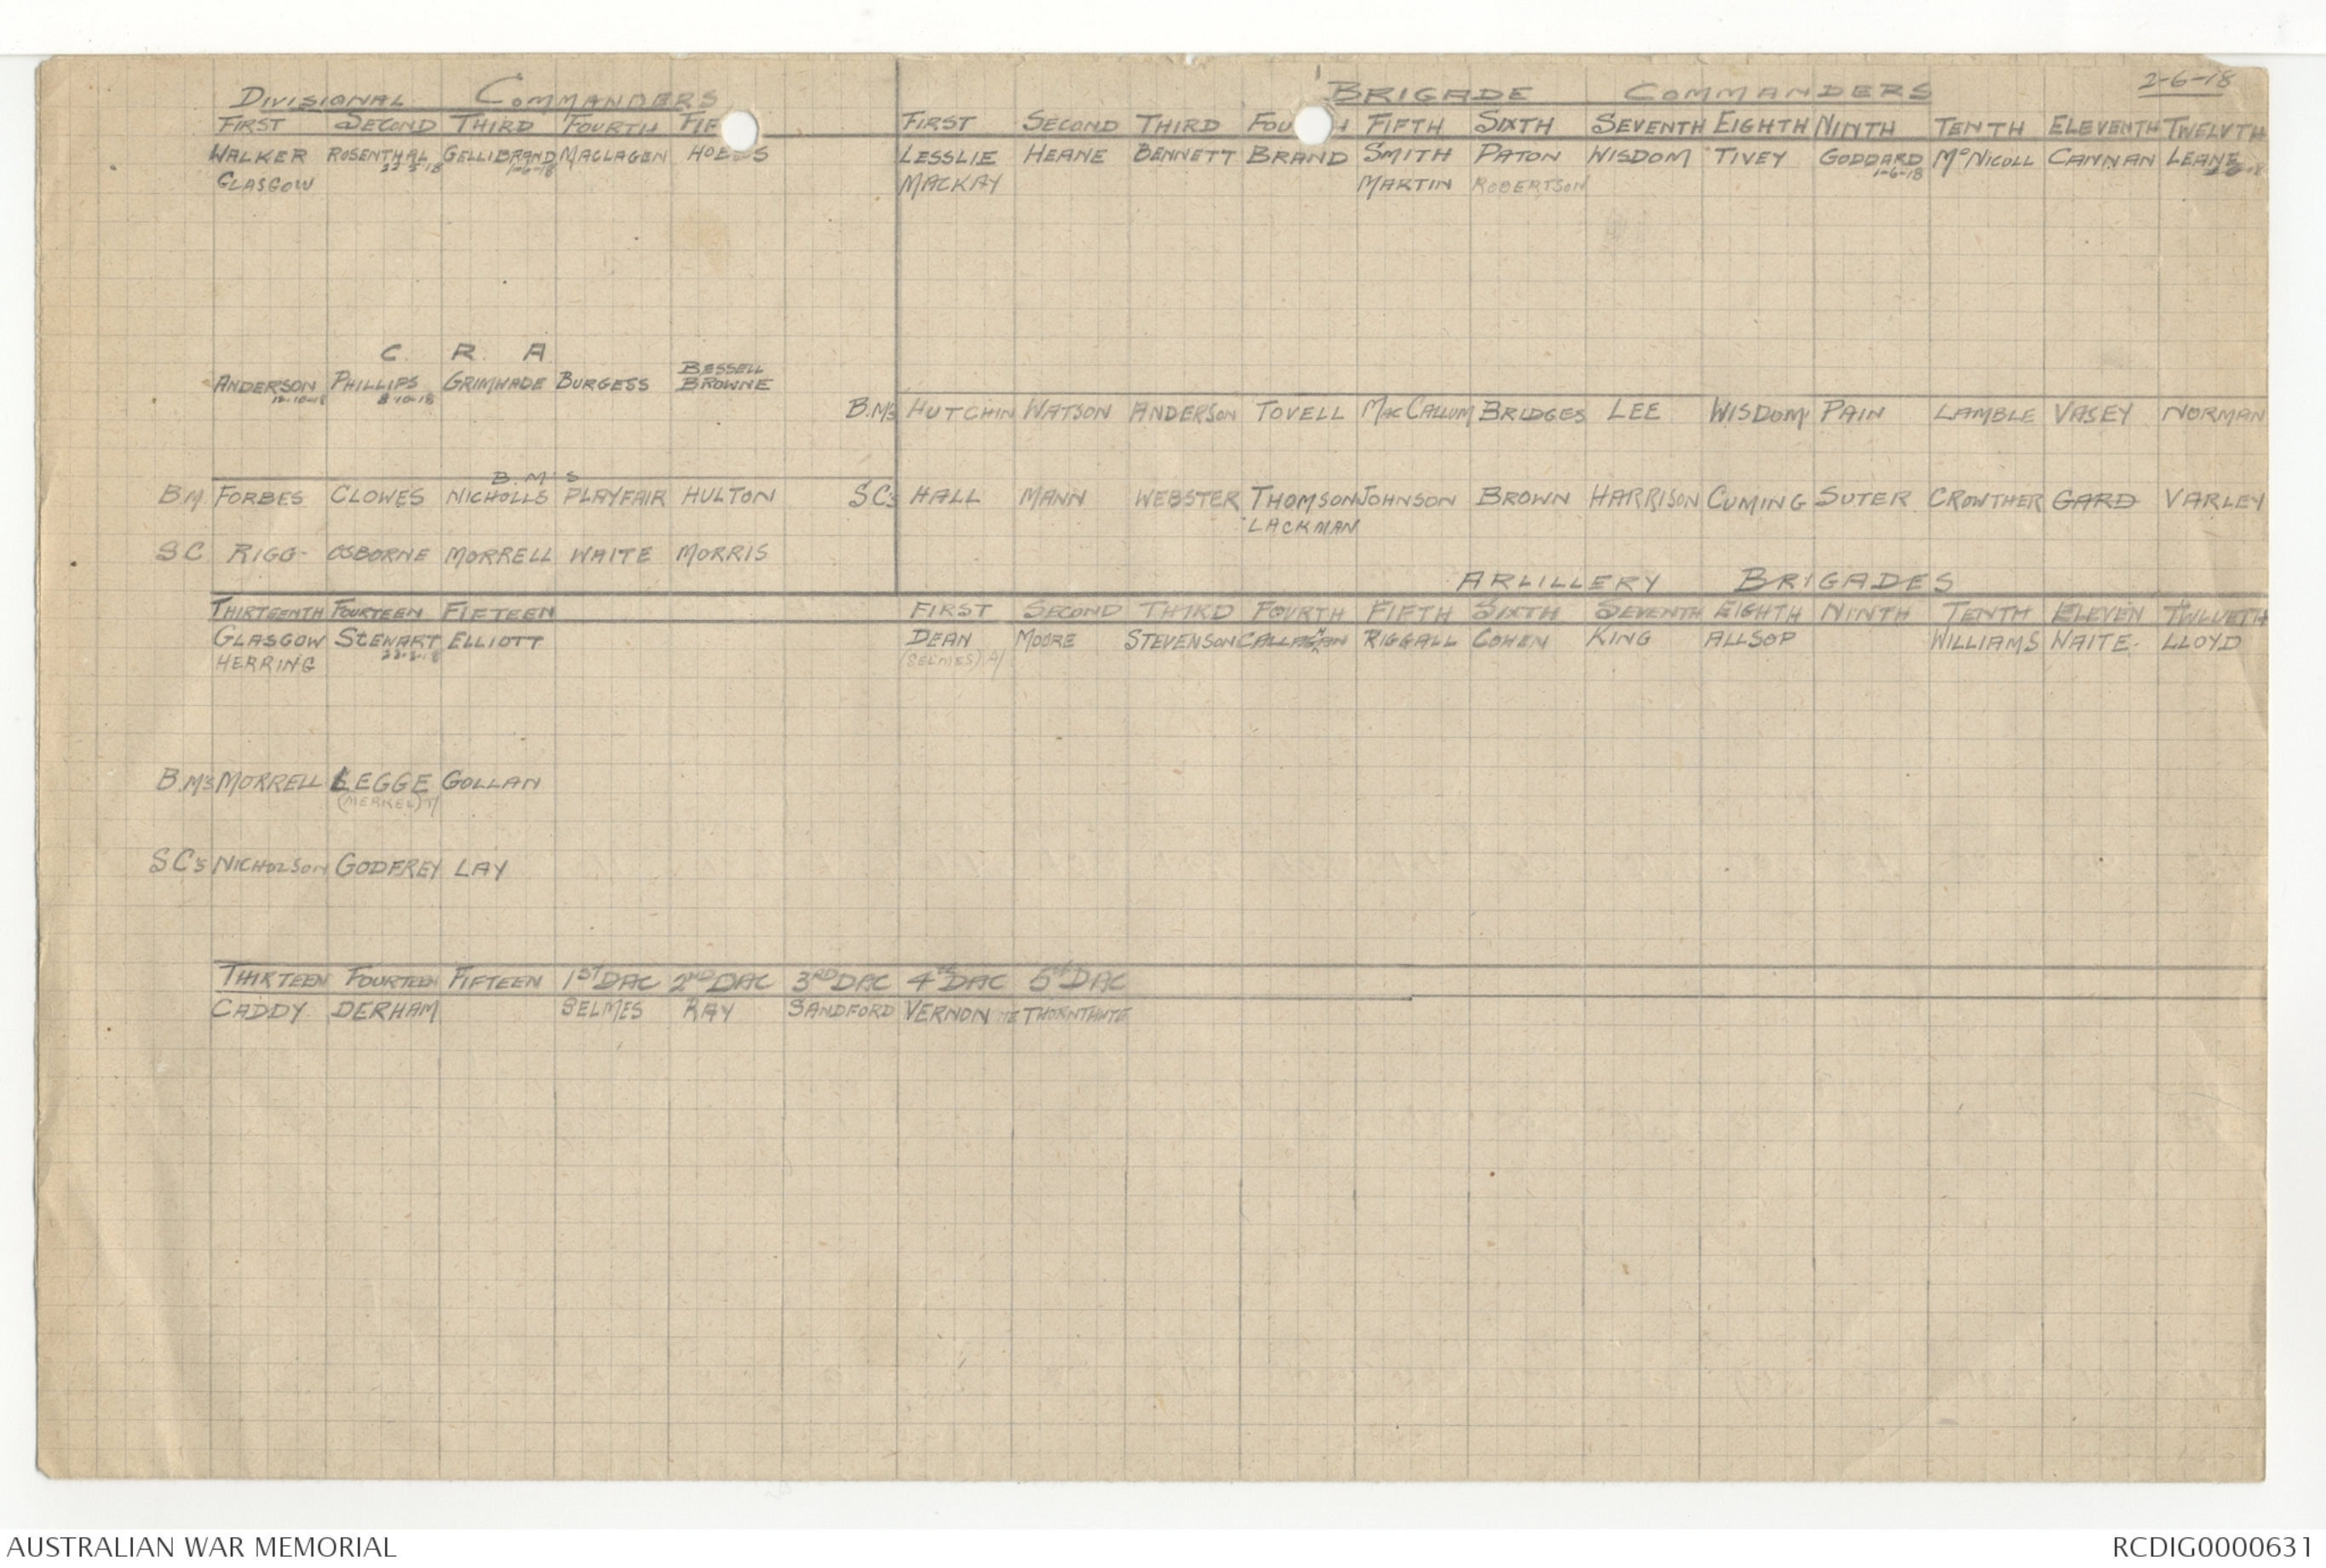 2-6-18
DIVISIONAL COMMANDERS
FIRST SECOND THIRD FOURTH FIF
WALKER ROSENTHAL GELLIBRAND MACLAGEN HOBBS
22-5-18 1-6-18
GLASGOW
C. R. A
ANDERSON PHILLIPS GRIMWADE BURGESS BESSELL BROWNE
12-10-18 8-10-18
B.M'S
B.M. FORBES CLOWES NICHOLLS PLAYFAIR HULTON
S.C. RIGG- OSBORNE MORRELL WAITE MORRIS
BRIGADE COMMANDERS
FIRST SECOND THIRD FOU H FIFTH SIXTH SEVENTH EIGHTH NINTH TENTH ELEVENTH TWELVTH
LESSLIE HEANE BENNETT BRAND SMITH PATON WISDOM TIVEY GODDARD McNICOLL CANNAN LEANE
1-6-18
MACKAY MARTIN ROBERTSON
B.M's HUTCHIN WATSON ANDERSON TOVELL MacCALLUM BRIDGES LEE WISDOM PAIN LAMBLE VASEY NORMAN
SC's HALL MANN WEBSTER THOMSON JOHNSON BROWN HARRISON CUMING SUTER CROWTHER GARD VARLEY
LACKMAN
THIRTEENTH FOURTEEN FIFTEEN
GLASGOW STEWART ELLIOTT
HERRING
B.M's MORRELL LEGGE GOLLAN
(MERKEL) T/
SC's NICHOLSON GODFREY LAY
ARLILLERY BRIGADES
FIRST SECOND THIRD FOURTH FIFTH SIXTH SEVENTH EIGHTH NINTH TENTH ELEVEN TWLVETH
DEAN MOORE STEVENSON CALLAGHAN RIGGALL COHEN KING ALLSOP WILLIAMS WAITE- LLOYD
(SELMES) A/
THIRTEEN FOURTEEN FIFTEEN 1ST DAC 2ND DAC 3RD DAC 4TH DAC 5TH DAC
CADDY DERHAM SELMES RAY SANDFORD VERNON THORNTHWTE
AUSTRALIAN WAR MEMORIAL
RCDIG0000631